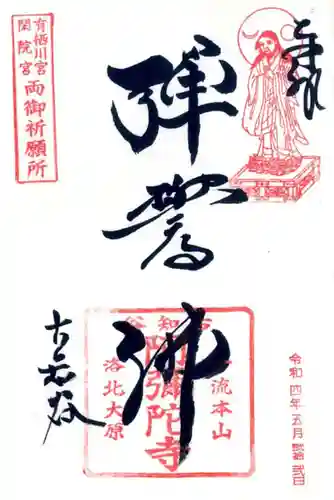 奉拝
有栖川宮
閑院宮
両御祈願所
彈誓佛
古知谷
一流本山
阿彌陀寺
洛北大原
古知谷
令和四年五月弐拾弐日